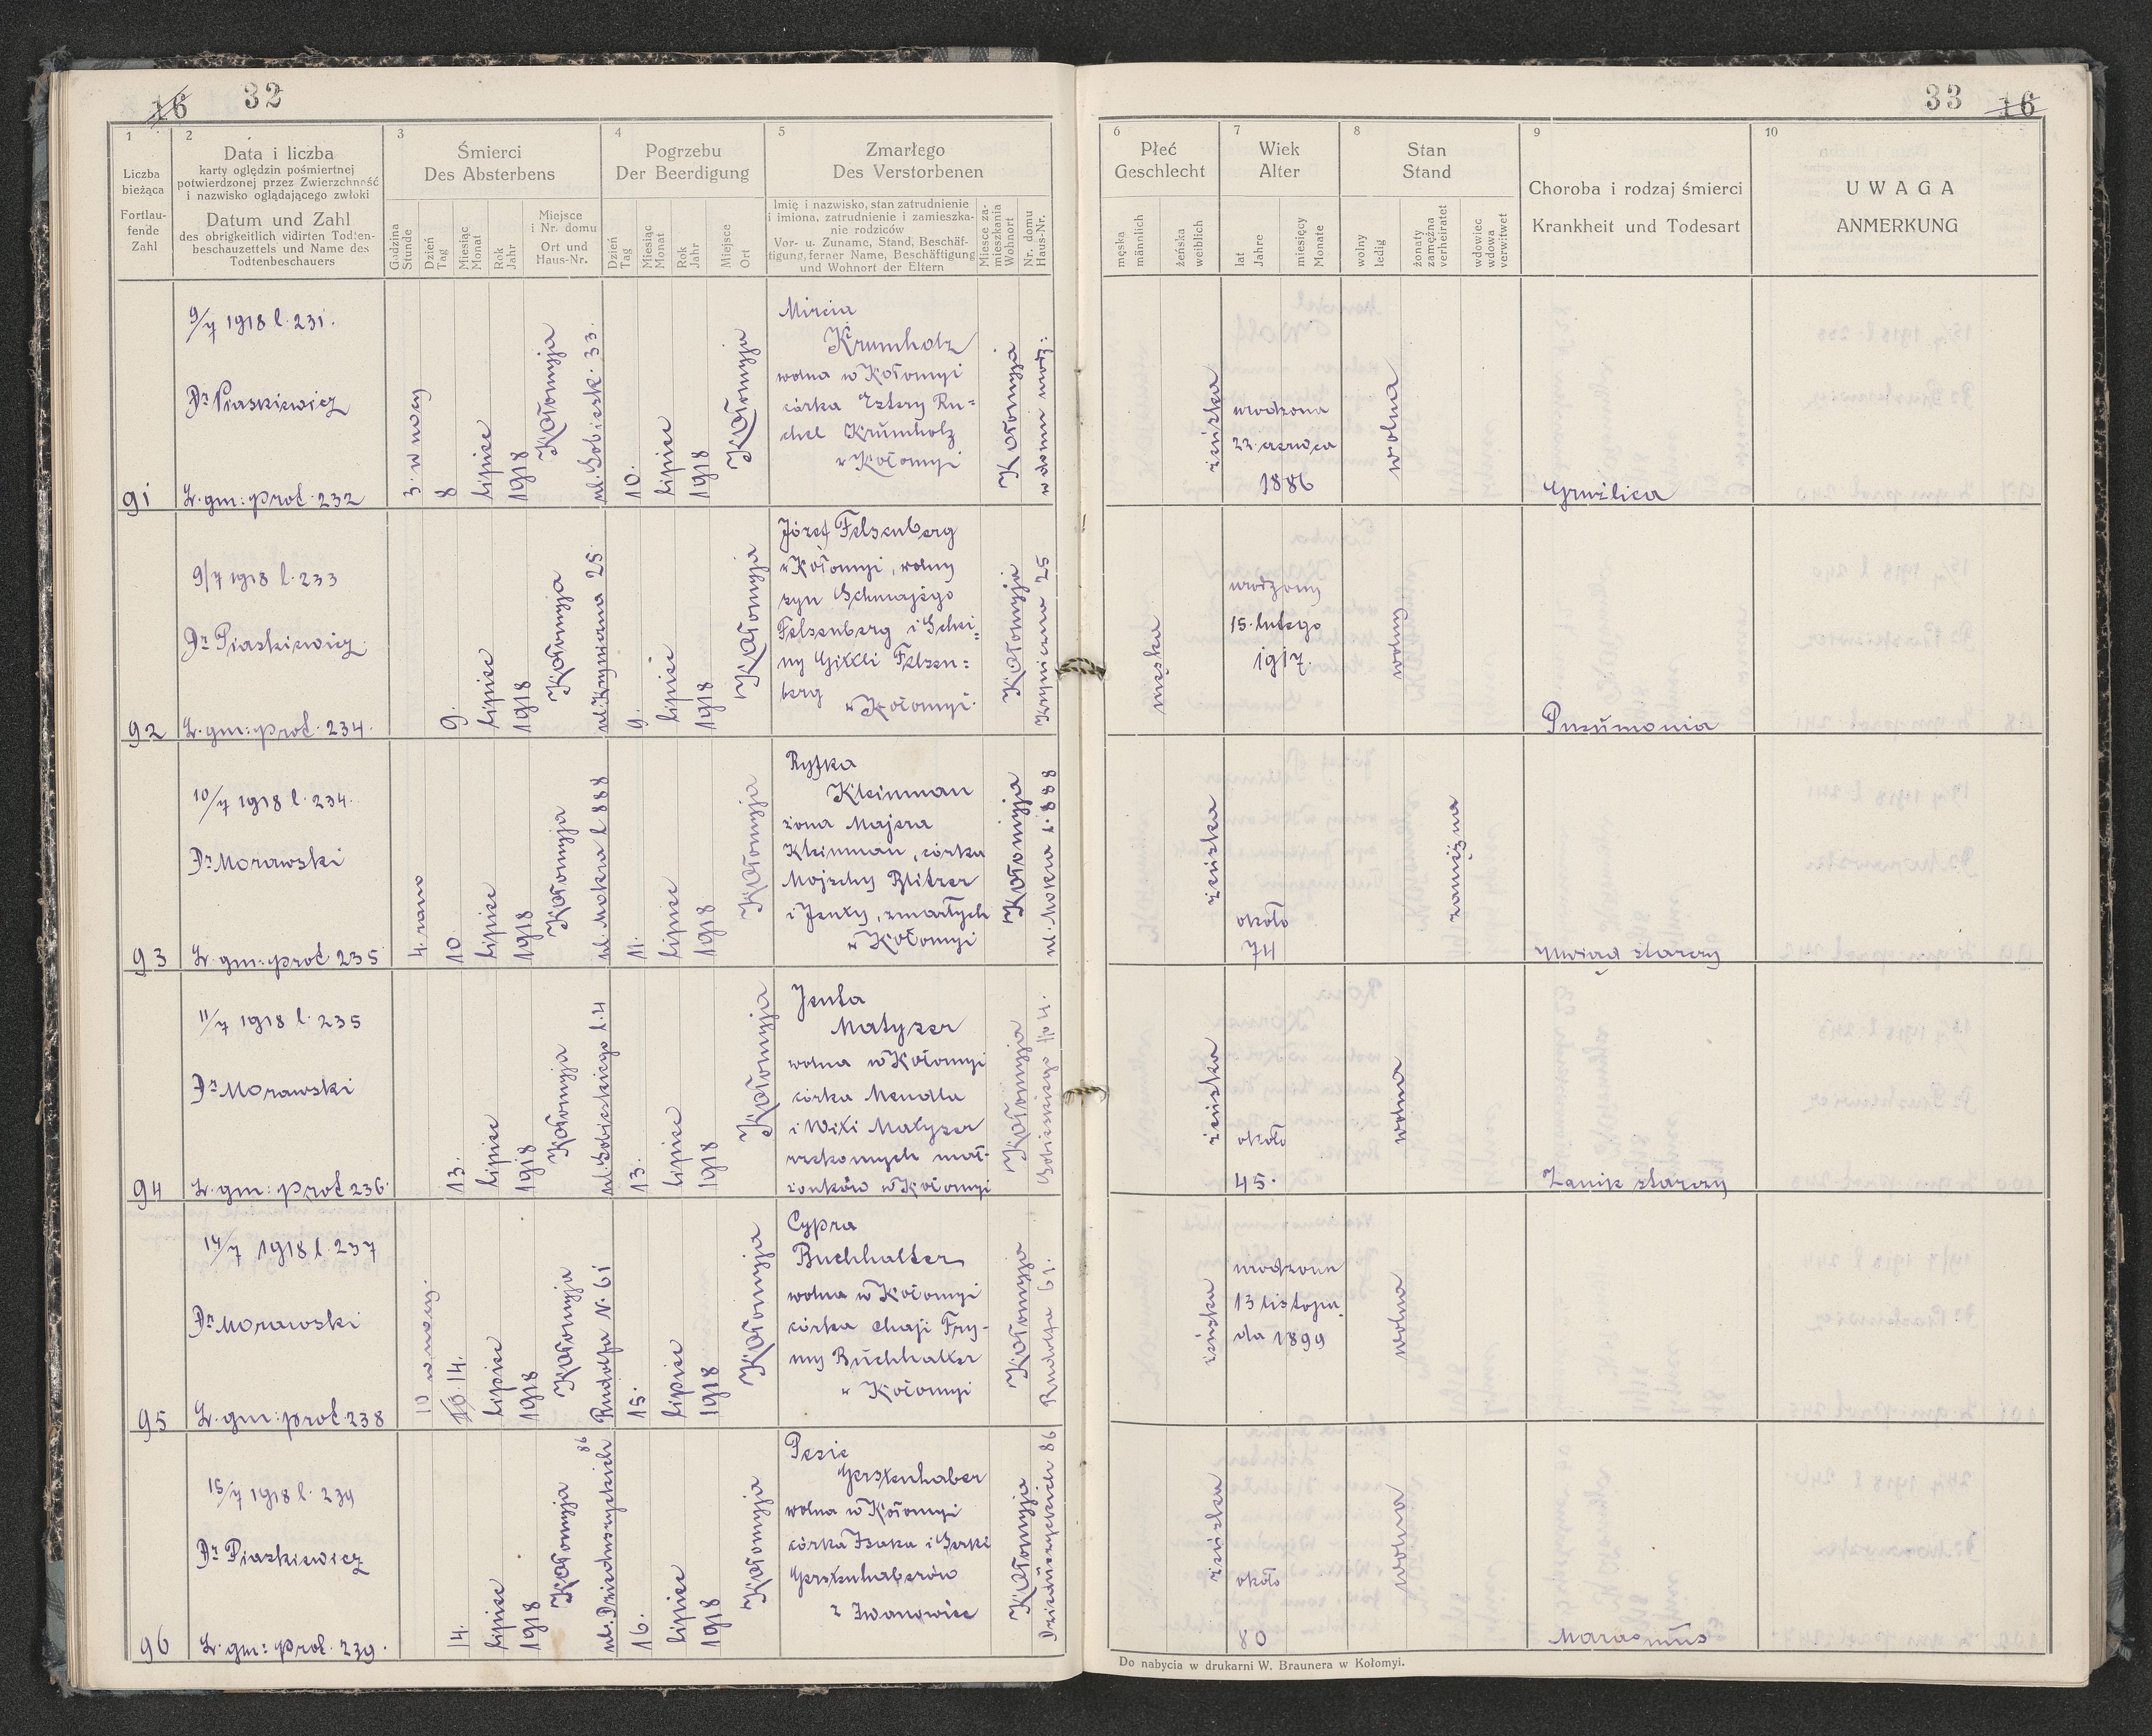 16 32
33 16
1
Liczba
bieżąca
Fortlau-
fende
Zahl
2
Data i liczba
karty oględzin pośmiertnej
potwierdzonej przez Zwierzchność
i nazwisko oglądającego zwłoki
Datum und Zahl
des obrigkeitlich vidirten Todten-
beschauzettels und Name des
Todtenbeschauers
3
Śmierci
Des Absterbens
Godzina
Stunde
Dzień
Tag
Miesiąc
Monat
Rok
Jahr
Miejsce
i Nr. domu
Ort und
Haus-Nr.
4
Pogrzebu
Der Beerdigung
Dzień
Tag
Miesiąc
Monat
Rok
Jahr
Miejsce
Ort
5
Zmarłego
Des Verstorbenen
Imię i nazwisko, stan zatrudnienie
i imiona, zatrudnienie i zamieszka-
nie rodziców
Vor- u. Zuname, Stand, Beschäf-
tigung, ferner Name, Beschäftigung
und Wohnort der Eltern
Miesce za-
mieszkania
Wohnort
Nr. domu
Haus-Nr.
6
Płeć
Geschlecht
męska
männlich
żeńska
weiblich
7
Wiek
Alter
lat
Jahre
miesięcy
Monate
8
Stan
Stand
wolny
ledig
żonaty
zamężna
verheiratet
wdowiec
wdowa
verwitwet
9
Choroba i rodzaj śmierci
Krankheit und Todesart
10
UWAGA
ANMERKUNG
91
9/7 1918 l. 231.
Dr Piaskiewicz
L. gm: prot. 232
3. w nocy
8
lipiec
1918
Kołomyja
ul. Sobiesk. 33.
10.
lipiec
1918
Kołomyja
Mircia
Krumholz
wolna w Kołomyi
córka Estery Ru=
chel Krümholz
w Kołomyi
Kołomyja
w domu
żeńska
urodzona
22 czerwca
1886
wolna
Gruźlica
92
9/7 1918 l. 233
Dr Piaskiewicz
L. gm: prot. 234.
9.
lipiec
1918
Kołomyja
ul. Krynicana 25.
9.
lipiec
1918
Kołomyja
Józef Felsenberg
w Kołomyi, wolny
syn Schmajego
Felsenberg i Schei=
ny Gittli Felsen=
berg
w Kołomyi.
Kołomyja
Kryniczna 25
męska
urodzony
15. lutego
1917.
wolny
Pneümonia
93
10/7 1918 l. 234.
Dr Morawski
L. gm: prot 235
4. rano
10.
lipiec
1918
Kołomyja
ul. Mokra l 888
11.
lipiec
1918
Kołomyja
Ryfka
Kleinman
żona Majera
Kleinman, córka
Mojschy Blitzer
i Jenty, zmarłych
w Kołomyi
Kołomyja
ul. Mokra L. 888
żeńska
około
74
zamężna
Uwiąd starczy
94
11/7 1918 l. 235
Dr Morawski
L. gm: prot 236.
13.
lipiec
1918
Kołomyja
ul. Sobieskiego l. 4
13.
lipiec
1918
Kołomyja
Jenta
Matyzer
wolna w Kołomyi
córka Mendla
i Witi Matyzer
rzekomych mał-
żonków w Kołomyi
Kołomyja
Sobieskiego No 4.
żeńska
około
45.
wolna
Zanik starczy
95
14/7 1918 l. 237
Dr Morawski
L. gm: prot. 238
10 w nocy.
10. 14.
lipiec
1918
Kołomyja
Rudolfa N. 61
15.
lipiec
1918
Kołomyja
Cypra
Buchhalter
wolna w Kołomyi
córka Chaji Fry-
my Büchhalter
w Kołomyi
Kołomyja
Rudolfa 61.
żeńska
urodzona
13 listopa
da 1899
wolna
96
15/7 1918 l. 239
Dr Piaskiewicz
L. gm: prot. 239.
14.
lipiec
1918
Kołomyja
ul. Dzieduszyckich 86
16.
lipiec
1918
Kołomyja
Pesie
Gerstenhaber
wolna w Kołomyi
córka Isaka i Serki
Gerstenhaberów
z Iwanowiec
Kołomyja
Dzieduszyckich 86
żeńska
około
80
wolna
Marasmüs
Do nabycia w drukarni W. Braunera w Kołomyi.